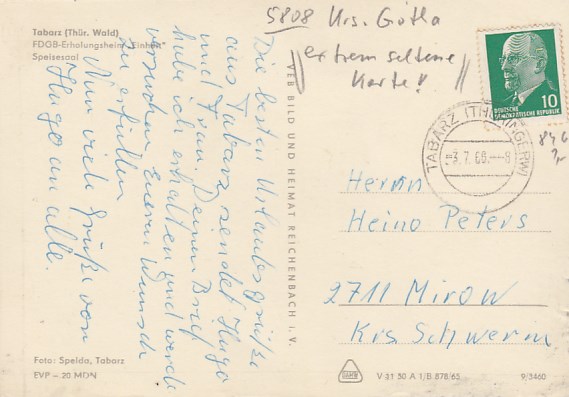 Tabarz (Thür. Wald)
FDGB-Erholungsheim "Einheit"
Speisesaal
5808 Krs. Gotha
extrem seltene
Karte!
DEUTSCHE
DEMOKRATISCHE REPUBLIK
10
TABARZ (THÜRINGERW)
-3.7.66.--8
846
Die besten Urlaubsgrüße
aus Tabarz sendet Hugo
und Frau. Deinen Brief
habe ich erhalten und werde
versuchen Eueren Wunsch
zu erfüllen
Nun viele Grüße von
Hugo an alle.
VEB BILD UND HEIMAT REICHENBACH i. V.
Herrn
Heino Peters
2711 Mirow
Krs Schwerin
Foto: Spelda, Tabarz
EVP – 20 MDN
V 11 50 A 1/B 878/65
9/3460